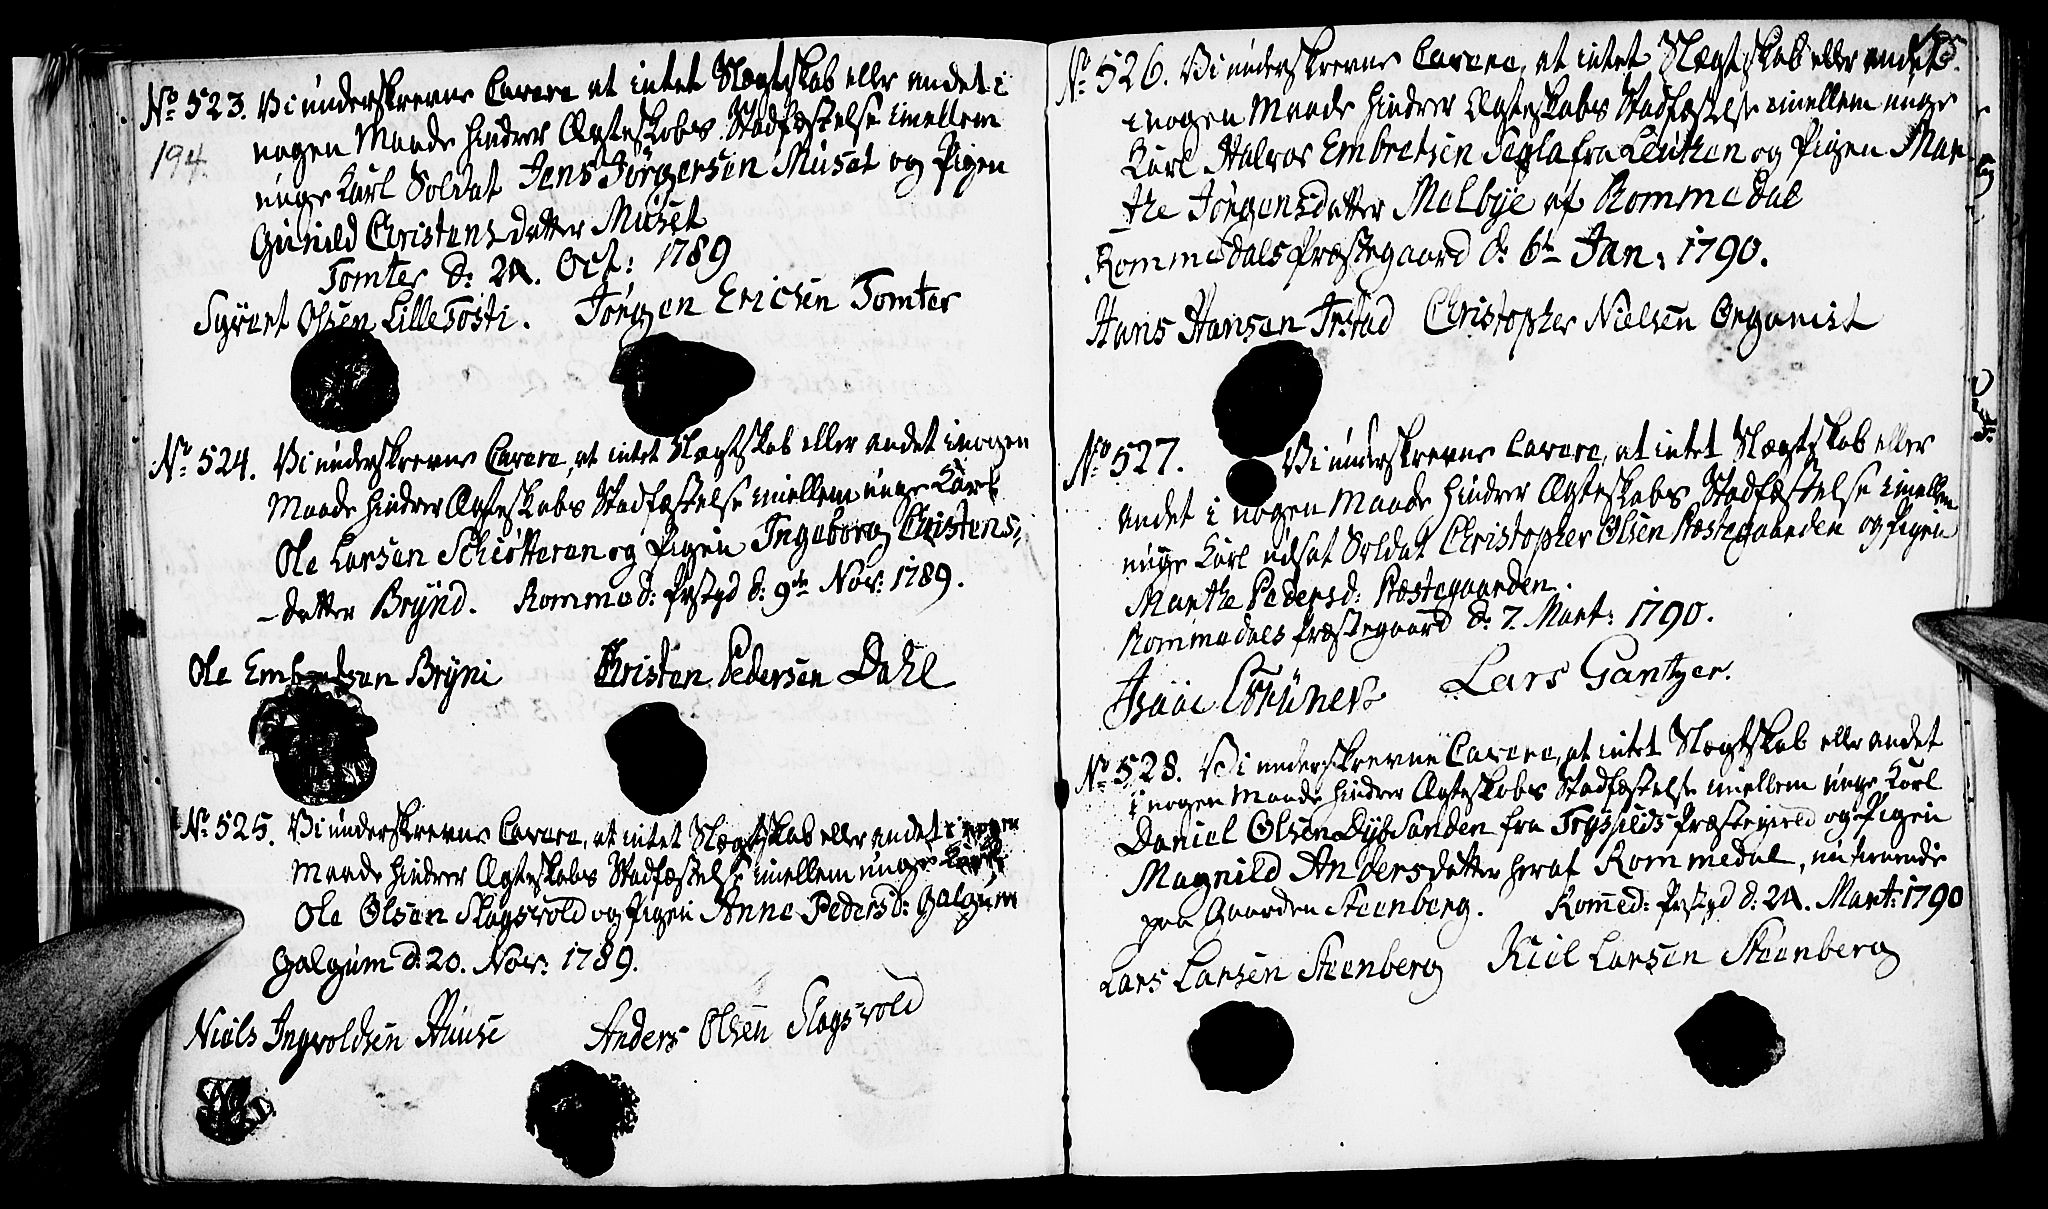 No 523. Vi underskrevne Cavere at intet Slægtskab eller andet i
194.
nogen Maade hindrer Ægteskabs Stadfæstelse imellem
unge Karl Soldat Jens Jörgensen Muset og Pigen
Gunild Christensdatter Muset
Tomter d: 21. Oct: 1789
Syvert Olsen Lille Tosti. Jörgen Erichsen Tomter
No 524. Vi underskrevne Cavere, at intet Slægtskab eller andet i nogen
Maade hindrer Ægteskabs Stadfæstelse imellem unge Karl
Ole Larsen Schiötteren og Pigen Ingeborg Christens-
datter Brÿnd. Rommed: Prstgd d: 9de Nov: 1789.
Ole Embretsen Brÿni Christen Pedersen Dahl
No 525. Vi underskrevne Cavere, at intet Slægtskab eller andet i nogen
Maade hindrer Ægteskabs Stadfæstelse imellem unge Karl
Ole Olsen Slagsvold og Pigen Anne Pedersd: Galgum
Galgum d: 20. Nov: 1789.
Niels Ingvoldsen Huuse Anders Olsen Slagsvold
No 526. Vi underskrevne Cavere, at intet Slægtskab eller andet
i nogen Maade hindrer Ægteskabs Stadfæstelse imellem unge
Karl Halvor Embretsen Segla fra Leuthen og Pigen Mar
the Jörgensdatter Melbÿe af Rommedal
Rommedals Præstegaard d: 6te Jan: 1790.
Hans Hansen Frstad Christopher Nielsen Organist
No 527. Vi underskrevne Cavere, at intet Slægtskab eller
andet i nogen Maade hindrer Ægteskabs Stadfæstelse imellem
unge Karl udsat Soldat Christopher Olsen Præstegaarden og Pigen
Marthe Pedersd: Præstegaarden.
Rommedals Præstegaard d: 7. Mart: 1790.
Isaac Grüner Lars Gantzer.
No 528. Vi underskrevne Cavere, at intet Slægtskab eller andet
i nogen Maade hindrer Ægteskabs Stadfæstelse imellem unge Karl
Daniel Olsen Dÿbsanden fra Trysilds Præstegield og Pigen
Magnild Andersdatter heraf Rommedal, nu værende
paa Gaarden Steenberg. Rommed: Prstgd d: 21. Mart: 1790
Lars Larsen Steenberg Kiel Larsen Steenberg